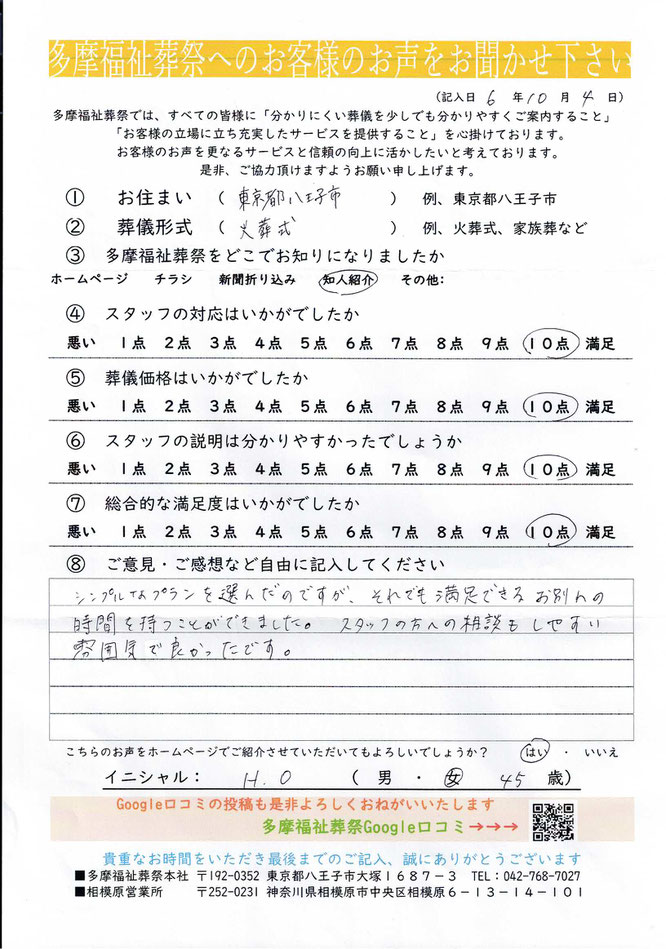 多摩福祉葬祭へのお客様のお声をお聞かせ下さい
(記入日 6 年 10 月 4 日)
多摩福祉葬祭では、すべての皆様に「分かりにくい葬儀を少しでも分かりやすくご案内すること」
「お客様の立場に立ち充実したサービスを提供すること」を心掛けております。
お客様のお声を更なるサービスと信頼の向上に活かしたいと考えております。
是非、ご協力頂けますようお願い申し上げます。
① お住まい ( 東京都八王子市 ) 例、東京都八王子市
② 葬儀形式 ( 火葬式 ) 例、火葬式、家族葬など
③ 多摩福祉葬祭をどこでお知りになりましたか
ホームページ チラシ 新聞折り込み 知人紹介 その他:
④ スタッフの対応はいかがでしたか
悪い 1点 2点 3点 4点 5点 6点 7点 8点 9点 10点 満足
⑤ 葬儀価格はいかがでしたか
悪い 1点 2点 3点 4点 5点 6点 7点 8点 9点 10点 満足
⑥ スタッフの説明は分かりやすかったでしょうか
悪い 1点 2点 3点 4点 5点 6点 7点 8点 9点 10点 満足
⑦ 総合的な満足度はいかがでしたか
悪い 1点 2点 3点 4点 5点 6点 7点 8点 9点 10点 満足
⑧ ご意見・ご感想など自由に記入してください
シンプルなプランを選んだのですが、それでも満足できるお別れの
時間を持つことができました。 スタッフの方への相談もしやすい
雰囲気で良かったです。
こちらのお声をホームページでご紹介させていただいてもよろしいでしょうか? はい ・ いいえ
イニシャル: H.O ( 男 ・ 女 45 歳)
Google口コミの投稿も是非よろしくおねがいいたします
多摩福祉葬祭Google口コミ→→→
貴重なお時間をいただき最後までのご記入、誠にありがとうございます
■多摩福祉葬祭本社 〒192-0352 東京都八王子市大塚1687-3 TEL:042-768-7027
■相模原営業所 〒252-0231 神奈川県相模原市中央区相模原6-13-14-101